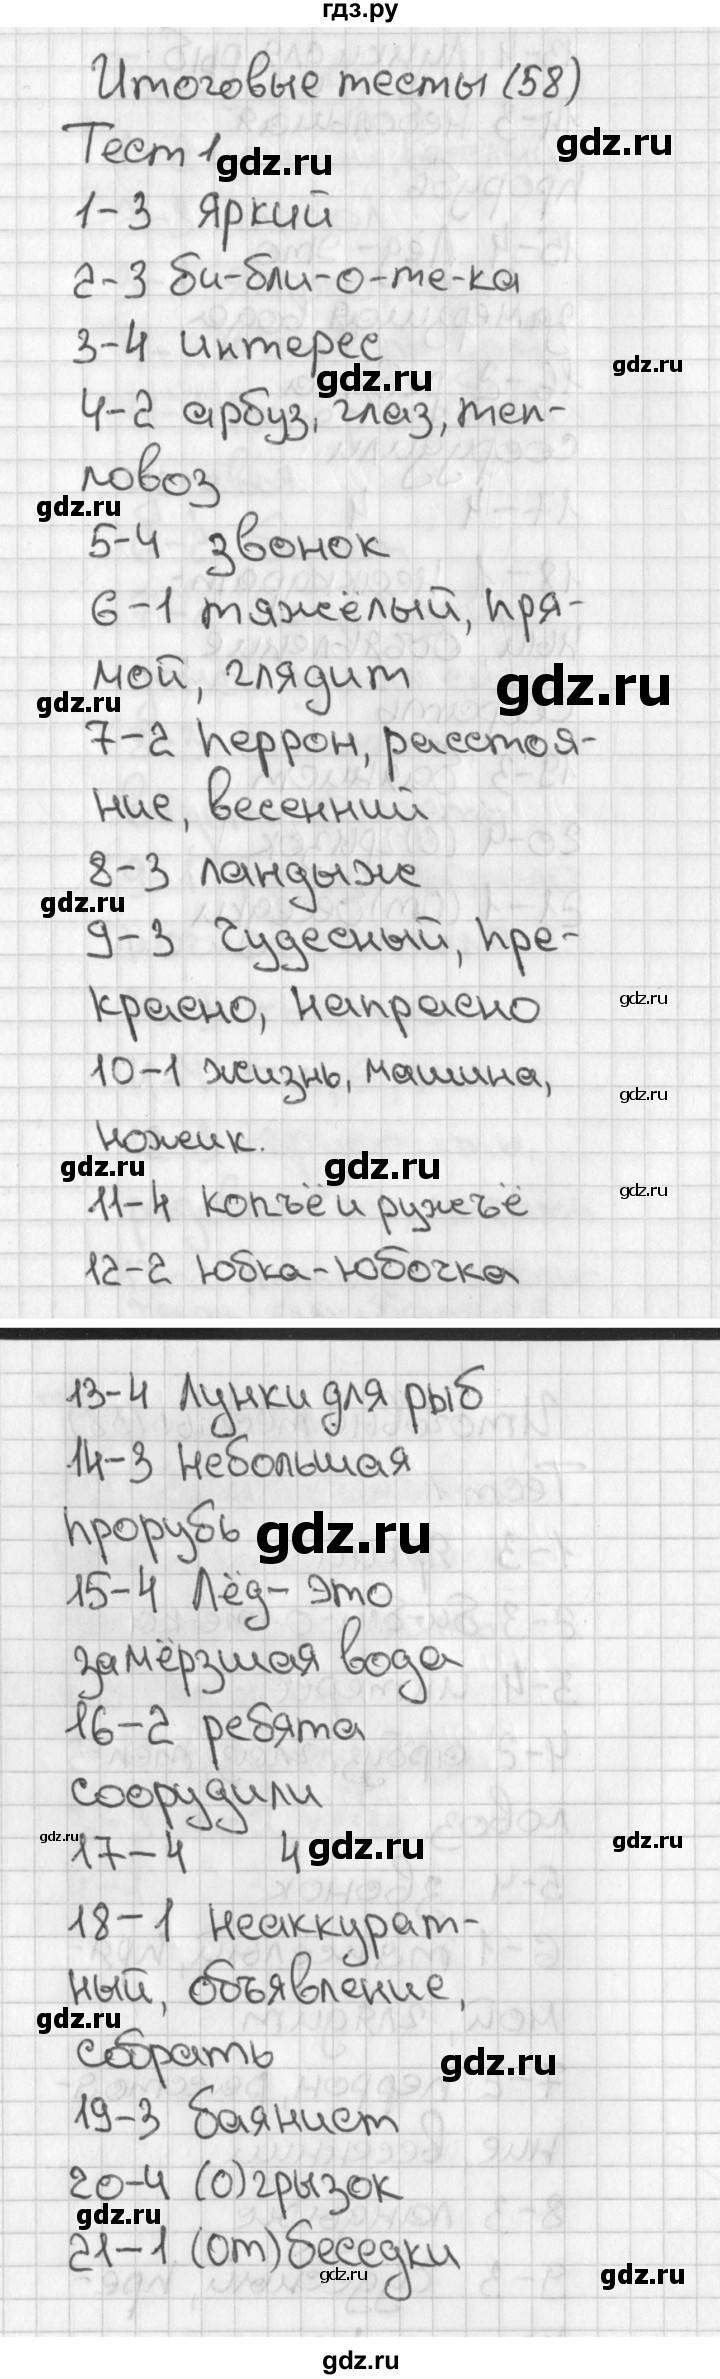 гдз.ру
Итоговые тесты (58)
gdz.ru
Тест 1
gdz.ru
1-3 яркий
2-3 би-бли-о-те-ка
3-4 интерес
gdz.ru
gdz.ru
4-2 арбуз, глаз, теп-
ловоз
gdz.ru
5-4 звонок
6-1 тяжёлый, пря-
мой, глядит
gdz.ru
gdz.ru
7-2 перрон, расстоя-
ние, весенний
8-3 ландыж
gdz.ru
9-3 чудесный, пре-
красно, напрасно
gdz.ru
10-1 жизнь, машина,
gdz.ru
ножик.
gdz.ru
gdz.ru
gdz.ru
11-4 копъё и ружъё
12-2 юбка-юбочка
13-4 Лунки для рыб
14-3 небольшая
прорубь
gdz.ru
15-4 Лёд- это
замёрзшая вода
16-2 ребята
соорудили
gdz.ru
17-4 4
gdz.ru
gdz.ru
18-1 неаккурат-
ный, объявление,
gdz.ru
собрать
gdz.ru
19-3 баянист
20-4 (о)грызок
gdz.ru
21-1 (от)беседки
gdz.ru
gdz.ru
gdz.ru